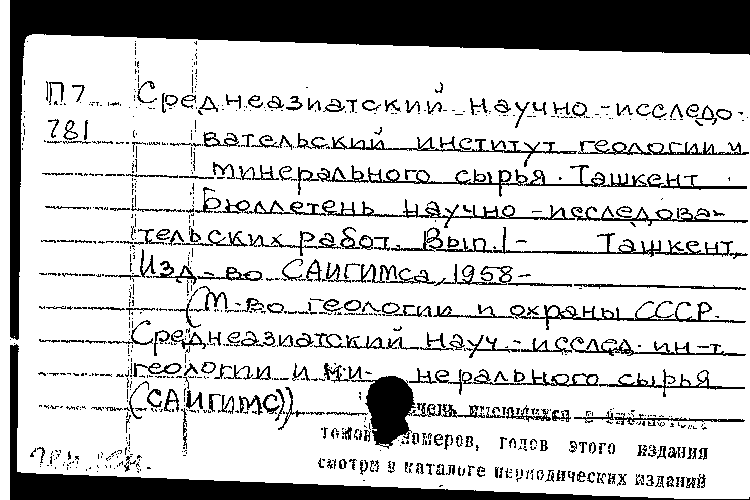 П7 Среднеазиатский научно-исследо-
781 вательский институт геологии и
минерального сырья. Ташкент.
Бюллетень научно-исследова-
тельских работ. Вып.1- Ташкент,
Изд-во САИГИМСа, 1958-
(М-во геологии и охраны СССР.
Среднеазиатский науч.-исслед. ин-т
геологии и ми- нерального сырья
(САИГИМС)).
имеющихся в библиотеке
томов, номеров, годов этого издания
смотри в каталоге периодических изданий